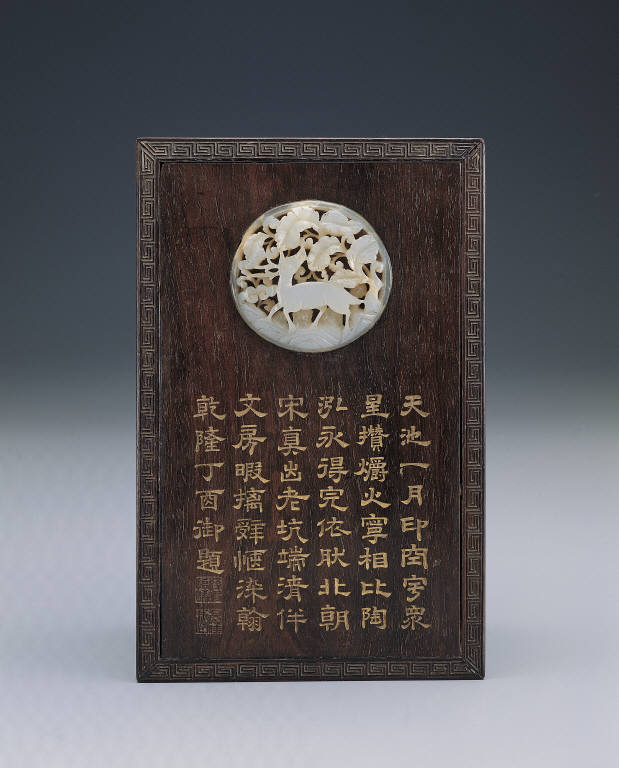 天池一月印宇眾
星攢爝火寧相比陶
泓永得完依肰北朝
宋真出老坑端清伴
文房暇摛辭愜染翰
乾隆丁酉御題